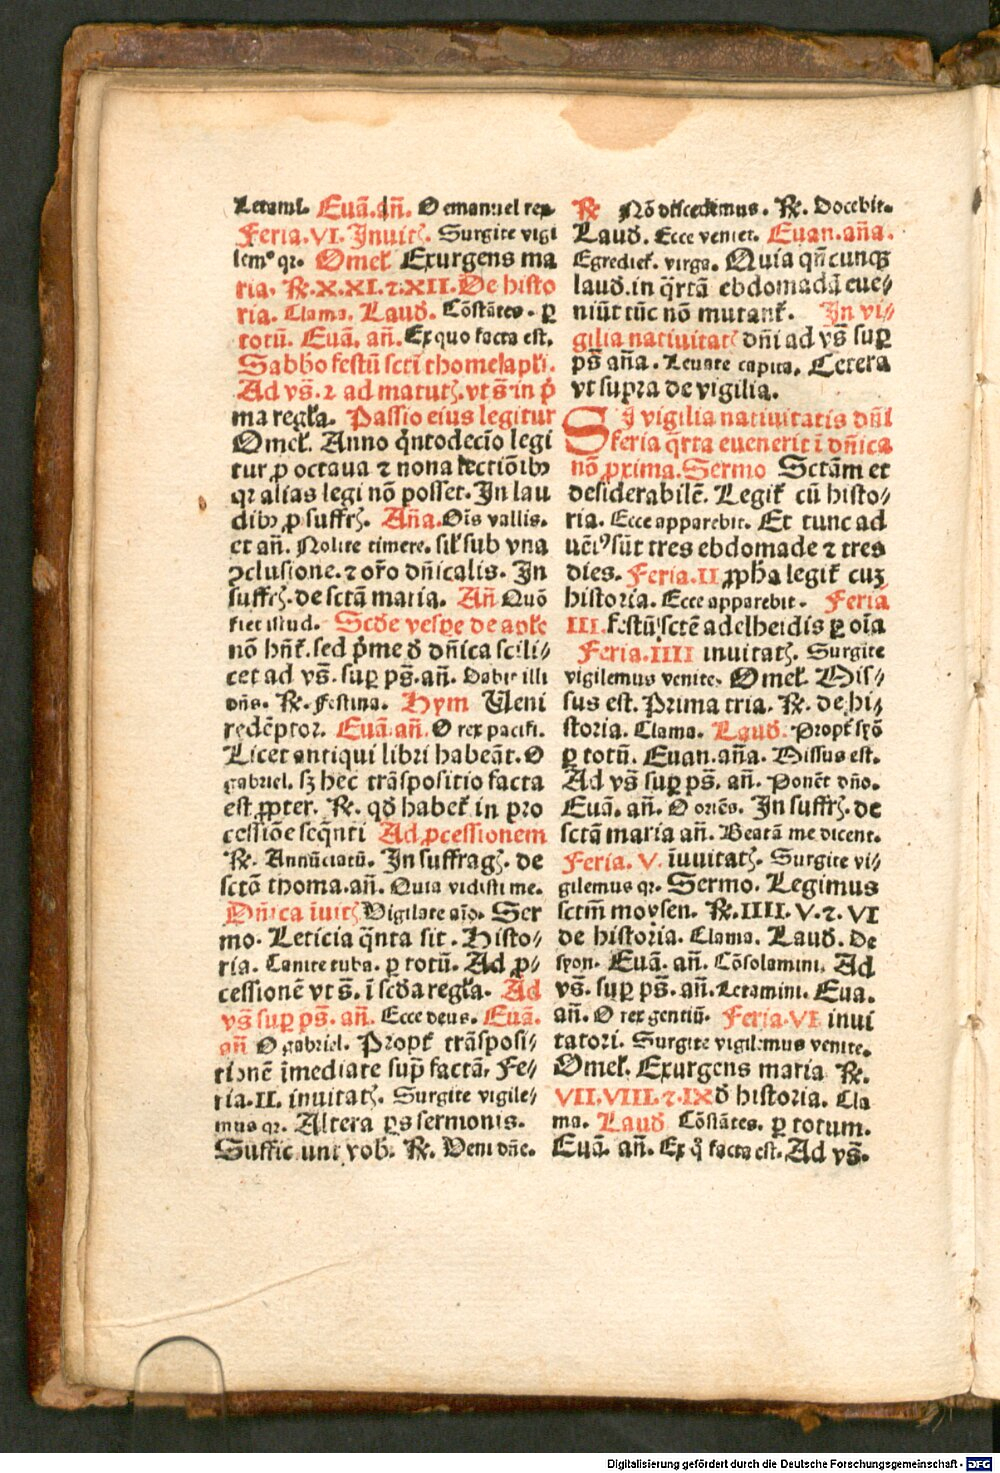 Letami. Euā. añ. O emanuel rex
Feria. VI. Inuitꝭ. Surgite vigi
lemꝰ qr. Omel̕. Exurgens ma
ria. ℟. X. XI. ⁊. XII. De histo
ria. Clama. Laud̕. Cōstātes. ꝑ
totū. Euā. añ. Ex quo facta est.
Sabbo festū scti thome apl̕i.
Ad vs̄. ⁊ ad matutꝭ. vt s̄ in p̄
ma regl̕a. Passio eius legitur
Omel̕. Anno q̄ntodecīo legi
tur ꝓ octaua ⁊ nona lectiōibꝰ
qꝛ alias legi nō posset. In lau
dibꝰ ꝓ suffrꝭ. Aña. Oīs vallis.
et añ. Nolite timere. sil̕ sub vna
ꝯclusione. ⁊ or̄o dn̄icalis. In
suffrꝭ. de sctā maria. Añ Quō
fiet istud. Scd̕e vesꝑe de apl̕o
nō hn̄t̕. sed p̄me d̕ dn̄ica scili⸗
cet ad vs̄. suꝑ ps̄. añ. Dabit illi
dn̄s. ℟. Festina. Hym Ueni
redēptor. Euā. añ. O rex pacifi.
Licet antiqui libri habeāt. O
gabriel. sꝫ hec trāspositio facta
est ꝓpter. ℟. qd̕ habet̕ in pro
cessiōe seq̄nti Ad ꝓcessionem
℟. Annūciatū. In suffragꝭ. de
sctō thoma. añ. Quia vidisti me.
Dn̄ica īuitꝭ Vigilate aīo. Ser
mo. Leticia q̄nta sit. Histo⸗
ria. Canite tuba. ꝑ totū. Ad ꝓ⸗
cessionē vt s̄. ī scd̕a regl̕a. Ad
vs̄ suꝑ ps̄. añ. Ecce deus. Euā.
añ O gabriel. Propt̕ trāsposi⸗
tionē īmediate sup̄ factā, Fe⸗
ria. II. inuitatꝭ. Surgite vigile⸗
mus qr. Altera ps sermonis.
Sufficiunt vob̕. ℟. Veni dn̄e.
℟ Nō discedimus. ℟. Docebit.
Laud̕. Ecce veniet. Euan. aña.
Egrediet̕. virga. Quia qn̄cunqꝫ
laud̕. in q̄rtā ebdomadā eue⸗
niūt tūc nō mutant̕. In vi⸗
gilia natiuitatꝭ dn̄i ad vs̄ suꝑ
ps̄ aña. Leuate capita. Cetera
vt supra de vigilia.
SI vigilia natiuitatis dn̄i
feria q̄rta euenerit ī dn̄ica
nō ꝓxima. Sermo Sctām et
desiderabilē. Legit̕ cū histo⸗
ria. Ecce apparebit. Et tunc ad
uētꝰ sūt tres ebdomade ⁊ tres
dies. Feria. II ꝓph̄a legit̕ cuꝫ
historia. Ecce apparebit. Feria
III. festū sctē adelheidis ꝑ oīa
Feria. IIII inuitatꝭ. Surgite
vigilemus venite. Omel̕. Mis⸗
sus est. Prima tria. ℟. de hi⸗
storia. Clama. Laud̕. Propt̕ syō
ꝑ totū. Euan. aña. Missus est.
Ad vs̄ suꝑ ps̄. añ. Ponēt dn̄o.
Euā. añ. O oriēs. In suffrꝭ. de
sctā maria añ. Beatā me dicent.
Feria. V. īuuitatꝭ. Surgite vi⸗
gilemus qr. Sermo. Legimus
sctm̄ moysen. ℟. IIII. V. ⁊. VI
de historia. Clama. Laud̕. De
syon. Euā. añ. Cōsolamini. Ad
vs̄. suꝑ ps̄. añ. Letamini. Eua.
añ. O rex gentiū. Feria. VI inui
tatori. Surgite vigilemus venite.
Omel̕. Exurgens maria ℟.
VII. VIII. ⁊. IX d̕ historia. Cla
ma. Laud̕ Cōstātes. ꝑ totum.
Euā. añ. Ex q̊ facta est. Ad vs̄.
Digitalisierung gefördert durch die Deutsche Forschungsgemeinschaft - DFG